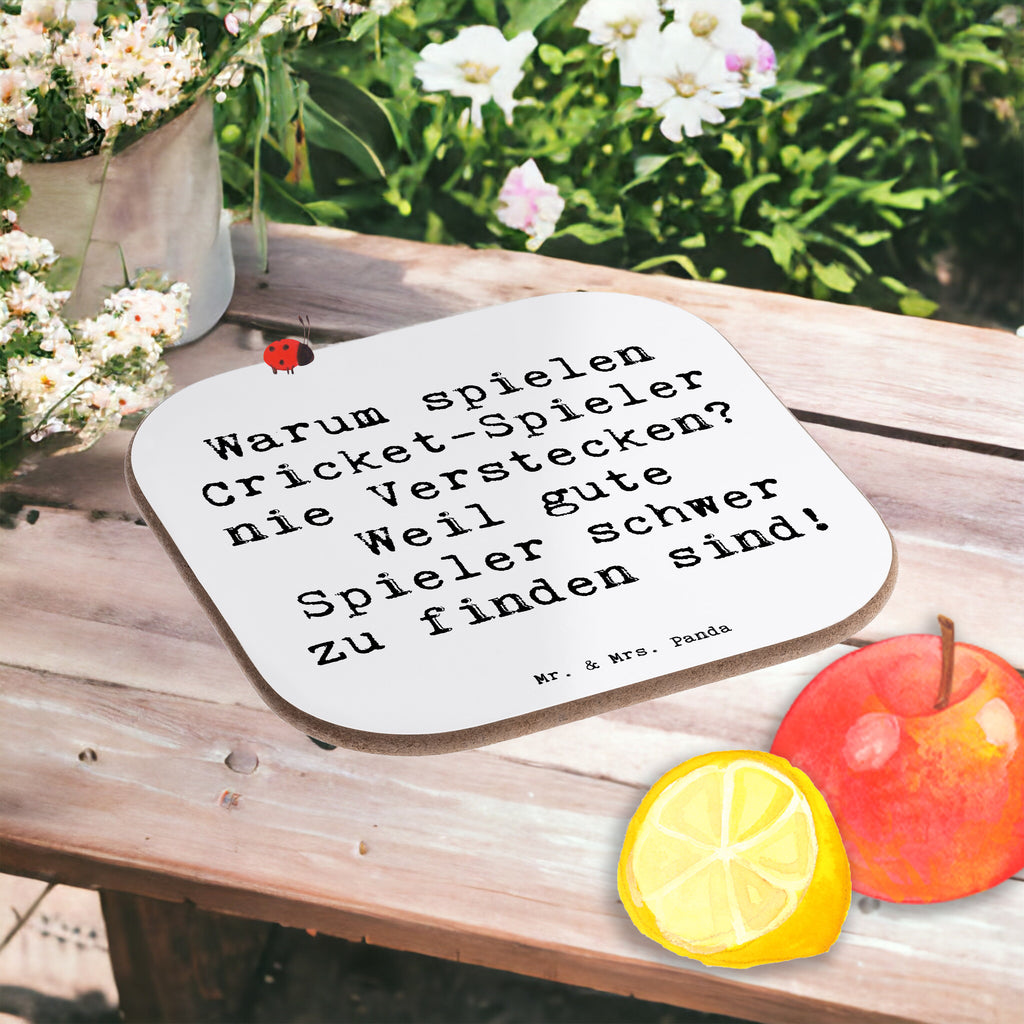 Warum spielen
Cricket-Spieler
nie Verstecken?
Weil gute
Spieler schwer
zu finden sind!
Mr. & Mrs. Panda